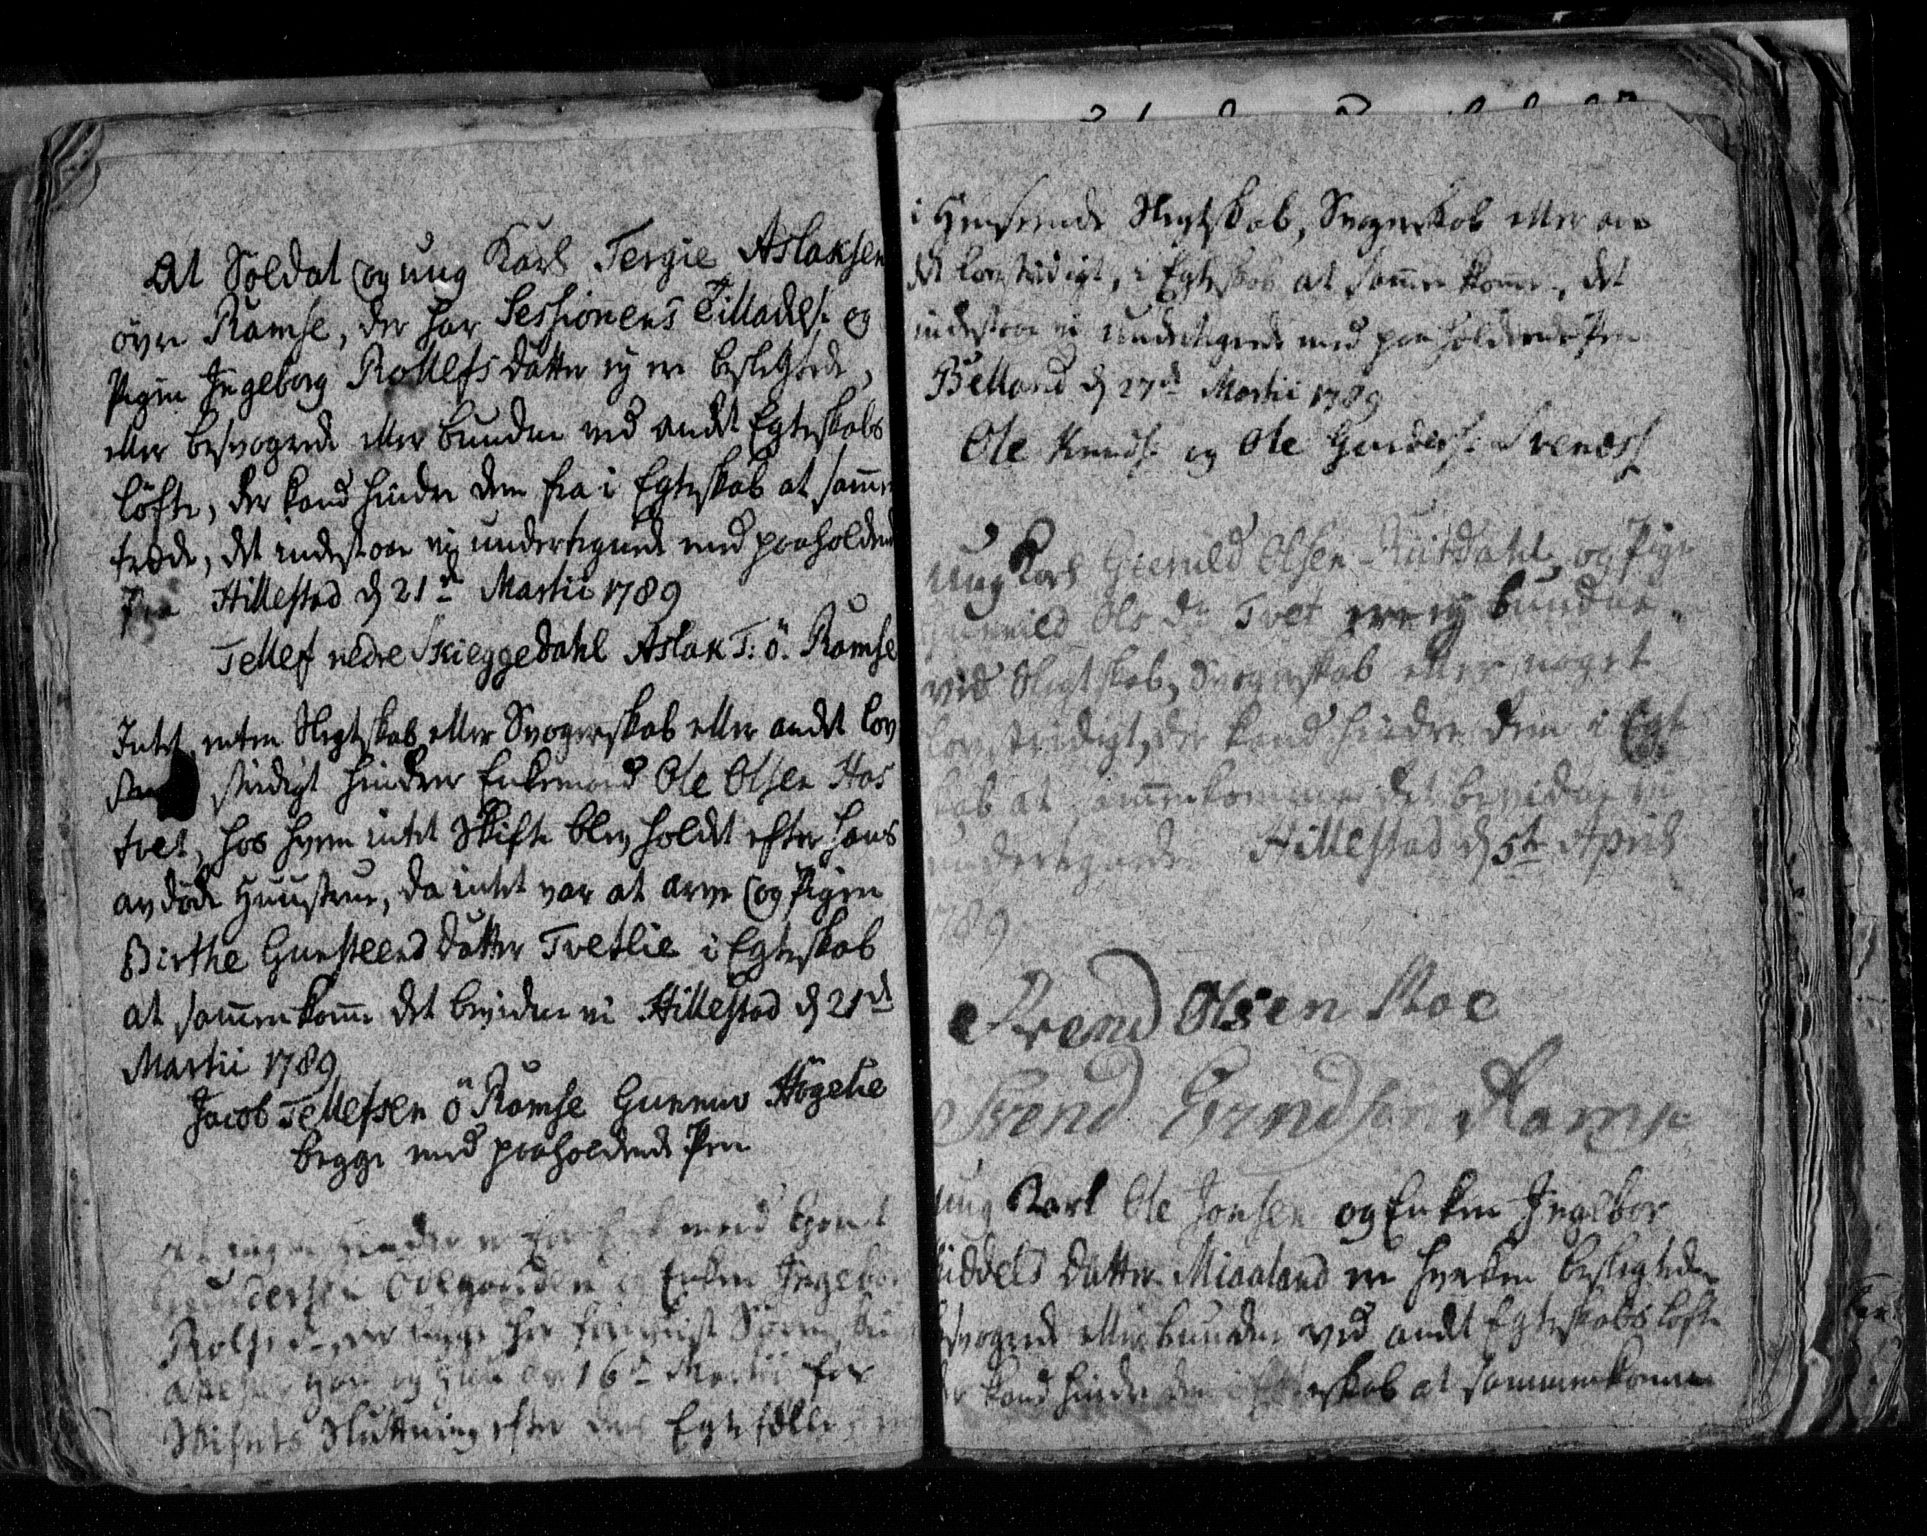 At Soldat og ung Karl Tergie Aslaksen
övre Ramse, der har Sessionens Tilladelse og
Pigen Ingeborg Rollefs datter ej ere beslegtede,
eller besvogrede eller bunden ved andet Egteskabs
löfte, der kand hindre dem fra i Egteskab at samen
træde, det indestaae vi undertegnede med paaholdende
Pen Hillestad d 21de Martii 1789
Tellef nedre Skieggedahl Aslak T: ö. Ramse
Intet, enten Slegtskab eller Svogerskab eller andet lov
stridigt hindrer Enkemand Ole Olsen Has
tvet, hos hvem intet Skifte blev holdet efter hans
avdöde Huustrue, da intet var at arve og Pigen
Birthe Gunsteens datter Tvetlie i Egteskab
at sammenkomme det bevidner vi Hillestad d 21de
Martii 1789
Jacob Tellefsen ö Ramse Gunnuv Högelie
begge med paaholdende Pen
at ingen hender er for Enkemand
Gundersen Ödegaarden og Enken Ingebor
Rolfs d.
16de Martii for
Skiftets Sluttning efter Egtefælle
i Henseende Slegtskab, Svogerskab eller an
det lovstridigt, i Egteskab at sammenkomme, det
indestaae vi undertegnede med paaholdende Pen
Belland d 27de Martii 1789
Ole Knuds: og Ole Gunders: Svends
Ung Karl Gieruld Olsen Rüsdahl og Pige
Gunnild Ols dr Tvet ere ej bundne
ved Slegtskab, Svogerskab eller noget
lovstridigt, der kand hindre dem i Egte
skab at sammenkomme det bevidner vi
undertegnede Hillestad d 5te April
1789
Svend Olsen Roe
Svend Svendsen Ramse
Ung Karl Ole Jonsen og Enken Ingebor
Kiddels datter Miaaland ere hverken beslegtede
besvogrede eller bunden ved andet Egteskabs löfte
der kand hindre dem i Egteskab at sammenkomme